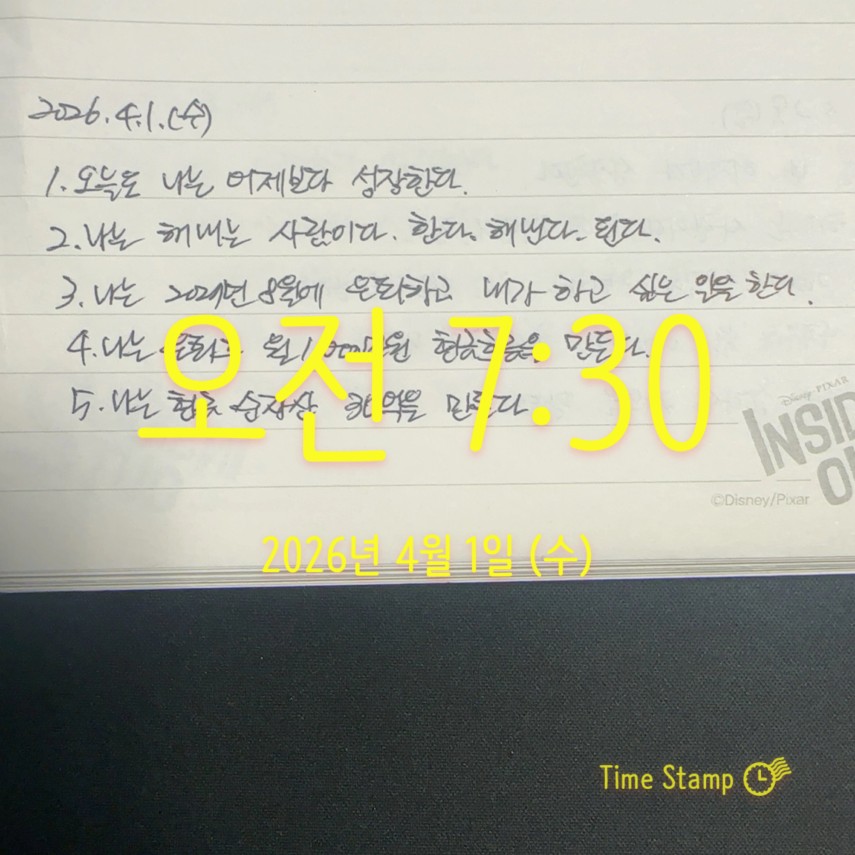 2026.4.1.(수)
1. 오늘도 나는 어제보다 성장한다.
2. 나는 해내는 사람이다. 한다. 해낸다. 된다.
3. 나는 8월에 은퇴하고 내가 하고 싶은 일을 한다.
4. 나는 월 현금흐름을 만든다.
5. 나는 순자산 만든다.
오전 7:30
2026년 4월 1일 (수)
DISNEY PIXAR
INSID
O
©Disney/Pixar
Time Stamp